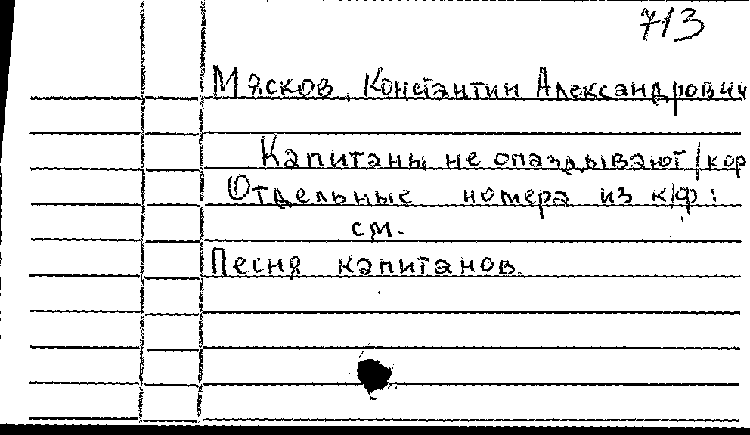 713
Мясков, Константин Александрович
Капитаны не опаздывают/кор
Отдельные номера из к/ф:
см.
Песня капитанов.